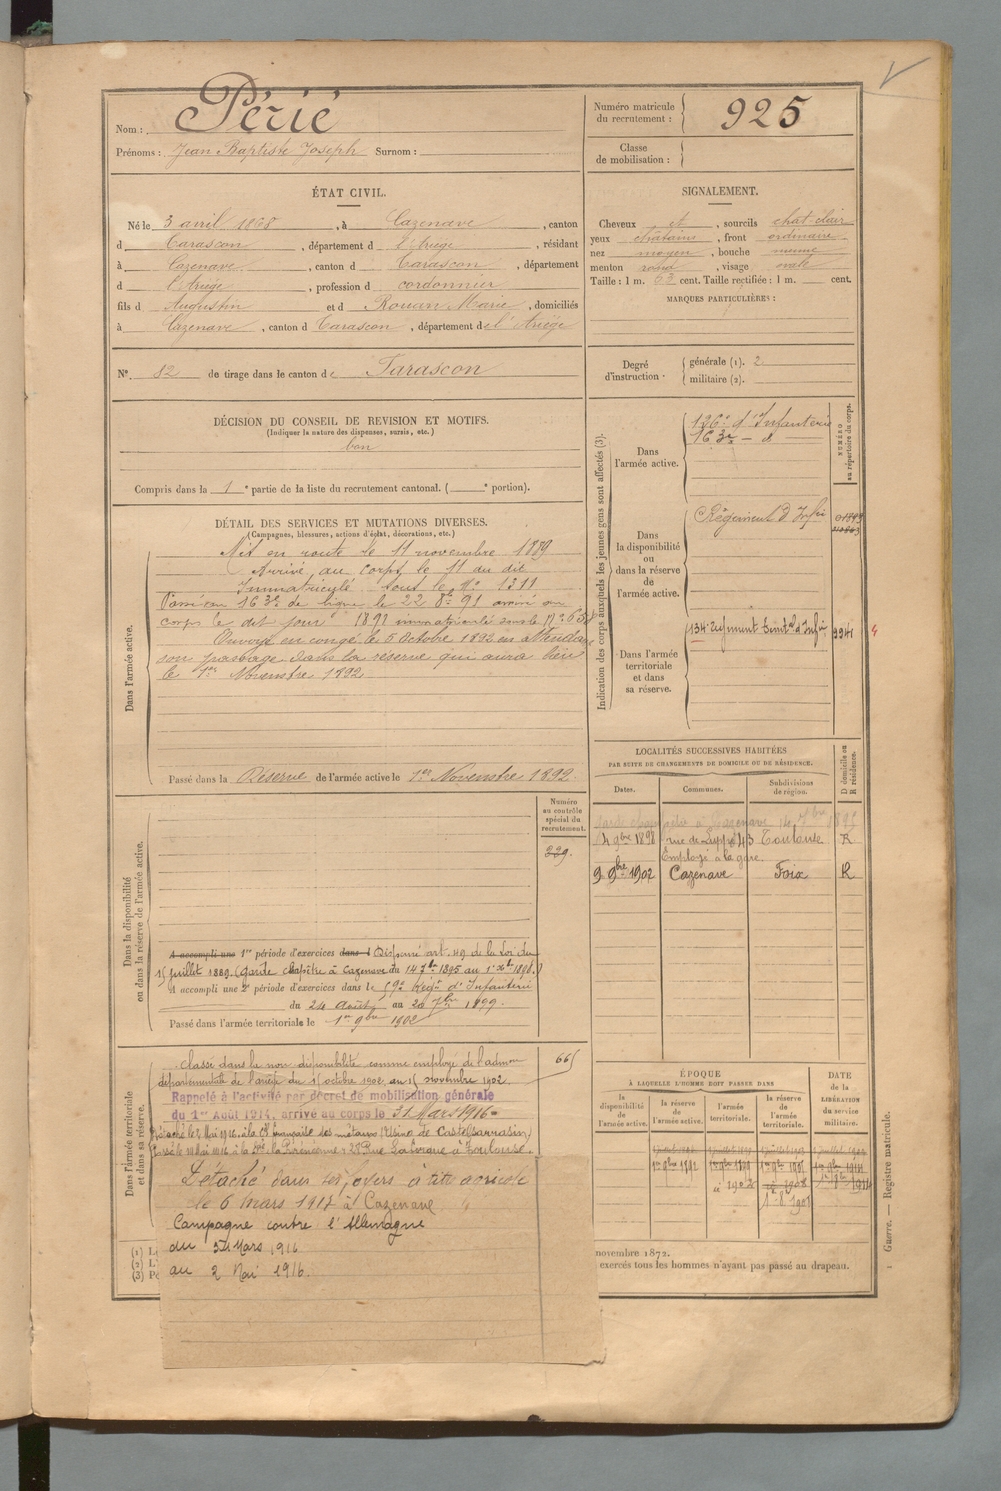 Nom : Périé
Prénoms : Jean Baptiste Joseph Surnom :
Numéro matricule du recrutement : 925
Classe de mobilisation :
ÉTAT CIVIL.
Né le 3 avril 1868, à Cazenave, canton
d Tarascon, département d l'Ariège, résidant
à Cazenave, canton d Tarascon, département
d l'Ariège, profession d cordonnier
fils d Augustin et d Rouan Marie, domiciliés
à Cazenave, canton d Tarascon, département de l'Ariège
N° 82 de tirage dans le canton de Tarascon
SIGNALEMENT.
Cheveux et, sourcils chat-clair
yeux châtains, front ordinaire
nez moyen, bouche
menton rond, visage ovale
Taille : 1 m. 63 cent. Taille rectifiée : 1 m. cent.
MARQUES PARTICULIÈRES :
Degré d'instruction.
générale (1). 2
militaire (2).
DÉCISION DU CONSEIL DE REVISION ET MOTIFS.
(Indiquer la nature des dispenses, sursis, etc.)
bon
Compris dans la 1e partie de la liste du recrutement cantonal. ( e portion).
DÉTAIL DES SERVICES ET MUTATIONS DIVERSES.
(Campagnes, blessures, actions d'éclat, décorations, etc.)
Dans l'armée active.
Mis en route le 11 novembre 1889
Arrivé au corps le 11 du dit
Immatriculé sous le N° 1311
Passé au 163e de ligne le 22 8bre 91 arrivé au
corps le dit jour 1891 immatriculé sous le N°
Envoyé en congé le 5 Octobre 1892 en attendant
son passage dans la réserve qui aura lieu
le 1er Novembre 1892
Passé dans la Réserve de l'armée active le 1er Novembre 1892.
Indication des corps auxquels les jeunes gens sont affectés (3).
Dans l'armée active.
126e d'Infanterie
163e - d
NUMÉRO au répertoire du corps.
Dans la disponibilité ou dans la réserve de l'armée active.
Régiment d'Infie
Dans l'armée territoriale et dans sa réserve.
134e régiment Territal d'Infie
LOCALITÉS SUCCESSIVES HABITÉES
PAR SUITE DE CHANGEMENTS DE DOMICILE OU DE RÉSIDENCE.
Dates. Communes. Subdivisions de région. D domicile ou R résidence.
garde champêtre à Cazenave 14 7bre 1895
14 9bre 1898 43 Toulouse R
Employé à la gare
9 9bre 1902 Cazenave Foix R
Dans la disponibilité ou dans la réserve de l'armée active.
Numéro au contrôle spécial du recrutement.
239.
A accompli une 1re période d'exercices dans l Dispensé art. 49 de la Loi du
15 juillet 1889. (Garde champêtre à Cazenave du 14 7bre 1895 au 1er Xbre 1898.)
A accompli une 2e période d'exercices dans le 59e Régt d'Infanterie
du 24 août au 20 7bre 1899.
Passé dans l'armée territoriale le 1er 9bre 1902
Dans l'armée territoriale et dans sa réserve.
665
Classé dans la non disponibilité comme employé de l'admon
départementale de l'ariège du 15 octobre 1902 au 15 novembre 1902.
Rappelé à l'activité par décret de mobilisation générale
du 1er Août 1914, arrivé au corps le 31 Mars 1916
Détaché le 2 Mai 1916 à la Cie Française des métaux (Usine de Castelsarrasin)
Passé le 10 Mai 1916 à la Pyrénéenne à Toulouse.
Détaché dans ses foyers à titre agricole
le 6 mars 1917 à Cazenave
Campagne contre l'Allemagne
du 31 Mars 1916
au 2 Mai 1916.
ÉPOQUE
À LAQUELLE L'HOMME DOIT PASSER DANS
la disponibilité de l'armée active.
la réserve de l'armée active.
l'armée territoriale.
la réserve de l'armée territoriale.
DATE de la LIBÉRATION du service militaire.
1er 9bre 1892
(1)
(2)
(3)
novembre 1872.
exercés tous les hommes n'ayant pas passé au drapeau.
Guerre. — Registre matricule.